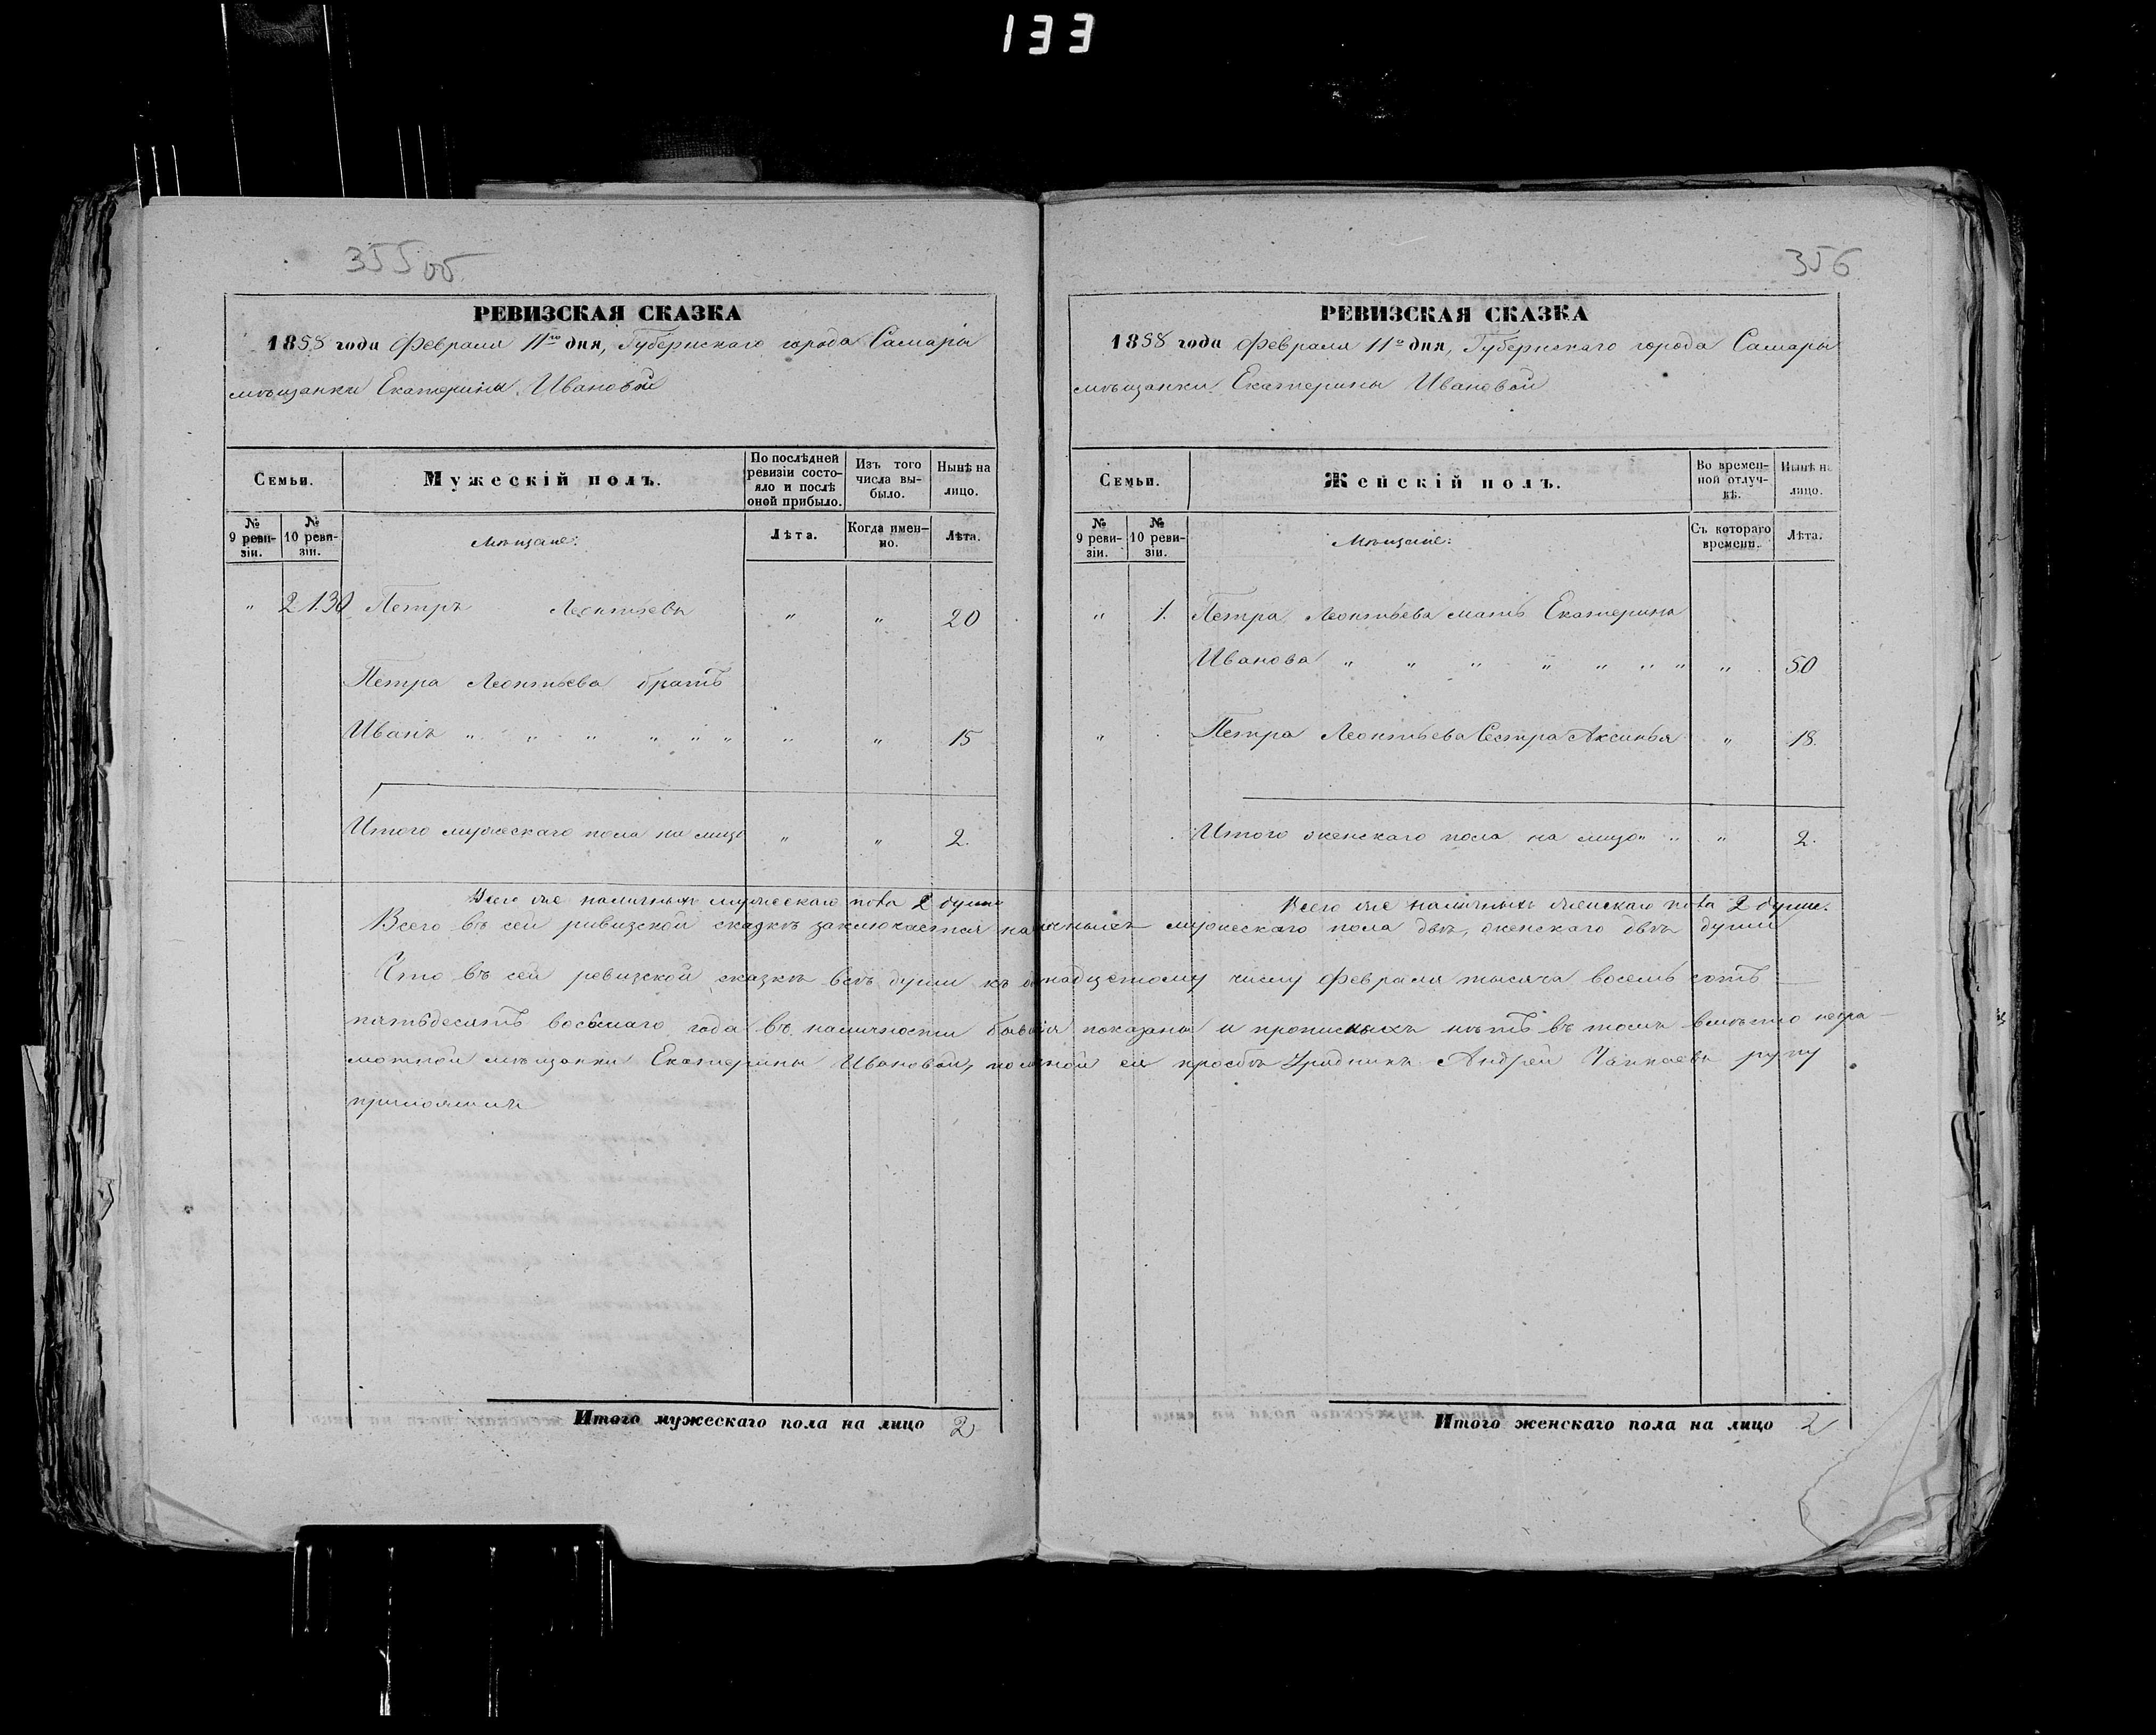 133
355 об
РЕВИЗСКАЯ СКАЗКА
1858 года Февраля 11го дня, Губернскаго города Самары
мѣщанки Екатерины Ивановой
Семьи.
Мужескій полъ.
По послѣдней ревизіи состояло и послѣ оной прибыло.
Изъ того числа выбыло.
Нынѣ на лицо.
№ 9 ревизіи.
№ 10 ревизіи.
Мѣщане:
Лѣта.
Когда именно.
Лѣта.
" 2130 Петръ Леонтьевъ " " 20
Петра Леонтьева братъ
Иванъ " " " " " " " " 15
Итого мужескаго пола на лицо " " 2.
Всего же наличныхъ мужескаго пола 2 души
356
РЕВИЗСКАЯ СКАЗКА
1858 года Февраля 11го дня, Губернскаго города Самары
мѣщанки Екатерины Ивановой
Семьи.
Женскій полъ.
Во временной отлучкѣ.
Нынѣ на лицо.
№ 9 ревизіи.
№ 10 ревизіи.
Мѣщане:
Съ котораго времени.
Лѣта.
" 1. Петра Леонтьева мать Екатерина
Иванова " " " " " " " " 50
" Петра Леонтьева Сестра Аксинья " 18.
Итого женскаго пола на лицо " " " 2.
Всего же наличныхъ женскаго пола 2 души.
Всего въ сей ривизской сказкѣ заключается наличныхъ мужескаго пола двѣ, женскаго двѣ души
Что въ сей ревизской сказкѣ всѣ души къ одинадцетому числу Февраля тысяча восемь сотъ
пятьдесятъ восьмаго года въ наличности бывшія показаны и прописныхъ нѣтъ въ томъ вмѣсто негра-
мотной мѣщанки Екатерины Ивановой, по личной ея просьбѣ Урядникъ Андрей руку
приложилъ
Итого мужескаго пола на лицо 2
Итого женскаго пола на лицо 2